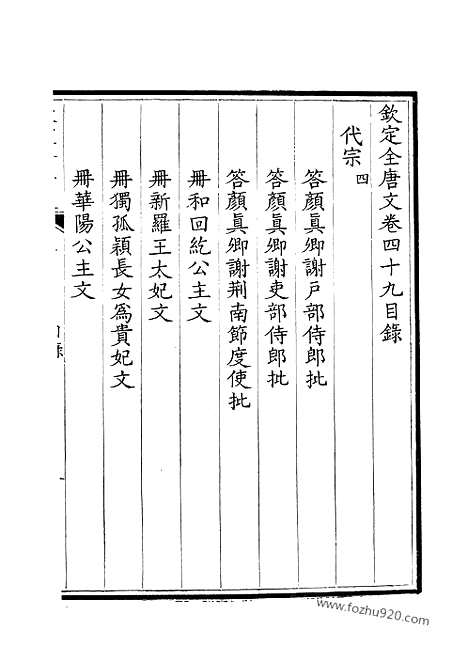 欽定全唐文卷四十九目錄
代宗四
答顏真卿謝戶部侍郎批
答顏真卿謝吏部侍郎批
答顏真卿謝荆南節度使批
冊和回紇公主文
冊新羅王太妃文
冊獨孤穎長女爲貴妃文
冊華陽公主文
www.fozhu920.com